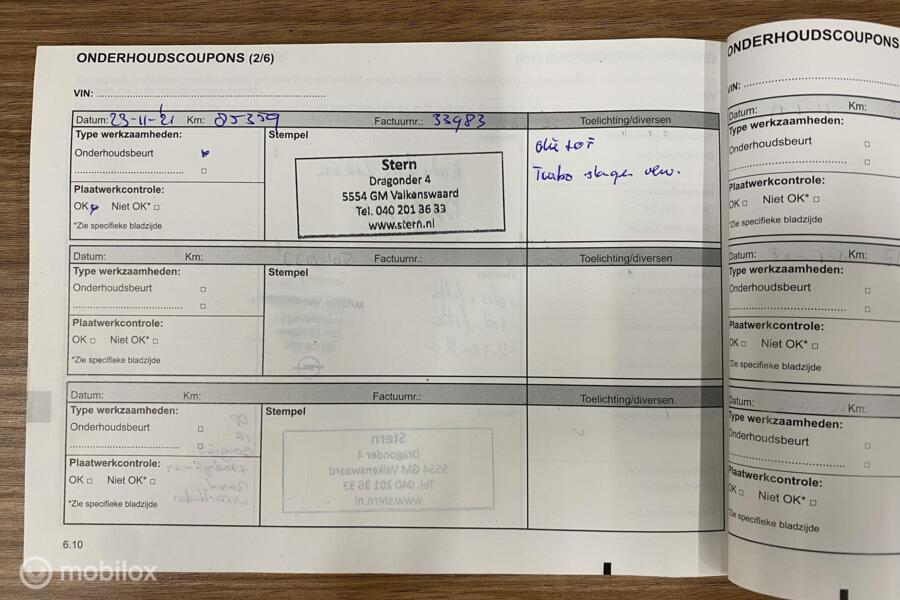 ONDERHOUDSCOUPONS (2/6)
VIN:
Datum: 23-11-21 Km: 85359 Factuurnr.: 33983 Toelichting/diversen
Type werkzaamheden: Stempel
Onderhoudsbeurt
Plaatwerkcontrole:
OK Niet OK*
*Zie specifieke bladzijde
Stern
Dragonder 4
5554 GM Valkenswaard
Tel. 040 201 36 33
www.stern.nl
Olie
Turbo slangen
Datum: Km: Factuurnr.: Toelichting/diversen
Type werkzaamheden: Stempel
Onderhoudsbeurt
Plaatwerkcontrole:
OK Niet OK*
*Zie specifieke bladzijde
Datum: Km: Factuurnr.: Toelichting/diversen
Type werkzaamheden: Stempel
Onderhoudsbeurt
Plaatwerkcontrole:
OK Niet OK*
*Zie specifieke bladzijde
Stern
Dragonder 4
5554 GM Valkenswaard
Tel. 040 201 36 33
www.stern.nl
6.10
ONDERHOUDSCOUPONS
VIN:
Datum: Km:
Type werkzaamheden:
Onderhoudsbeurt
Plaatwerkcontrole:
OK Niet OK*
*Zie specifieke bladzijde
Datum: Km:
Type werkzaamheden:
Onderhoudsbeurt
Plaatwerkcontrole:
OK Niet OK*
*Zie specifieke bladzijde
Datum: Km:
Type werkzaamheden:
Onderhoudsbeurt
Plaatwerkcontrole:
OK Niet OK*
*Zie specifieke bladzijde
mobilox